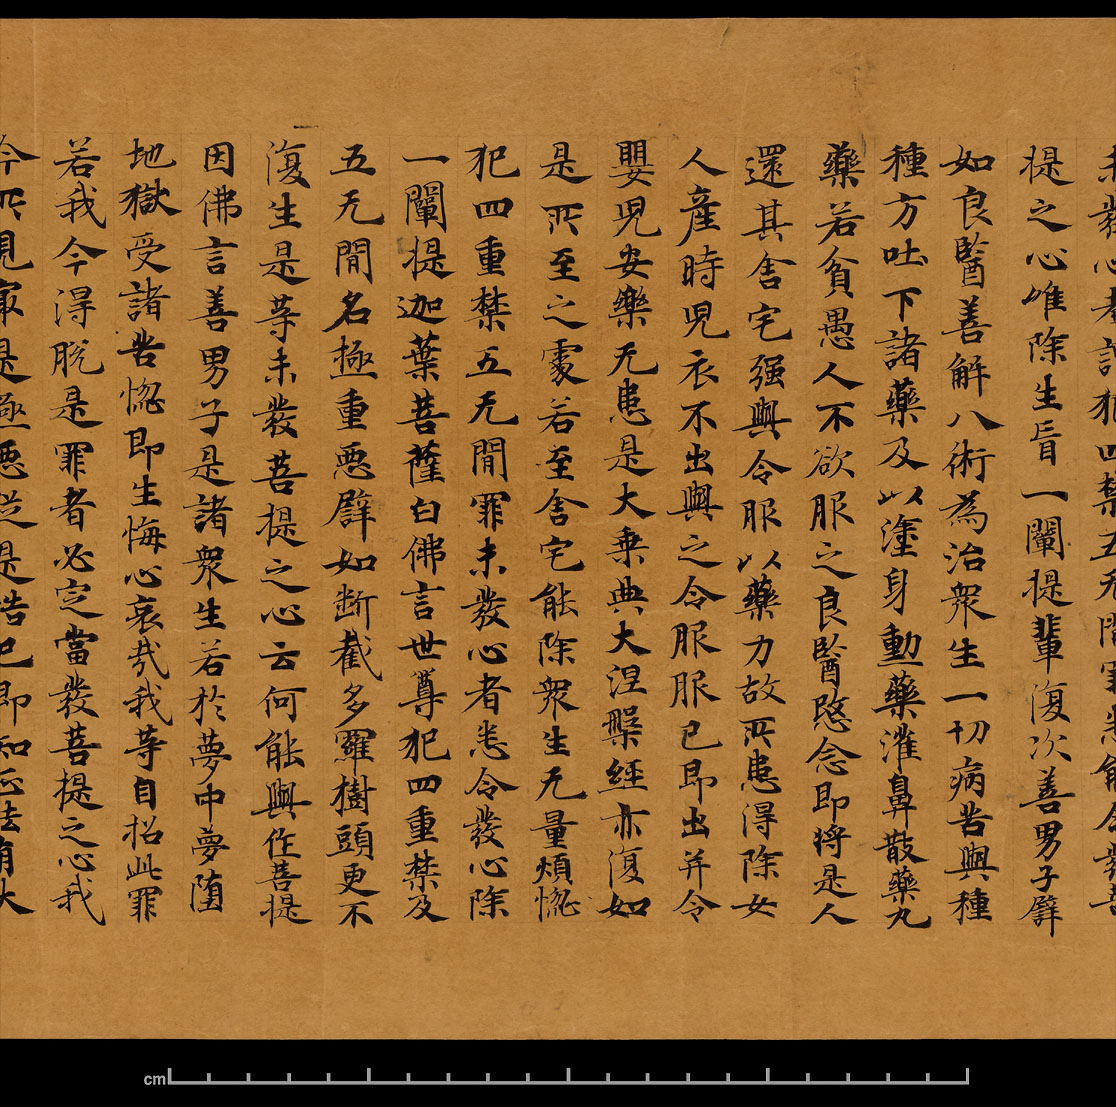 提之心唯除生盲一闡提輩復次善男子譬
如良醫善解八術為治衆生一切病苦與種
種方吐下諸藥及以塗身勳藥灌鼻散藥丸
藥若貧愚人不欲服之良醫愍念即將是人
還其舍宅强與令服以藥力故所患得除女
人產時兒衣不出與之令服服已即出并令
嬰兒安樂无患是大乘典大涅槃經亦復如
是所至之處若至舍宅能除衆生无量煩惱
犯四重禁五无間罪未發心者悉令發心除
一闡提迦葉菩薩白佛言世尊犯四重禁及
五无間名極重惡譬如斷截多羅樹頭更不
復生是等未發菩提之心云何能與作菩提
因佛言善男子是諸衆生若於夢中夢墮
地獄受諸苦惱即生悔心哀哉我等自招此罪
若我今得脫是罪者必定當發菩提之心我
今所見最是極惡從是悟已即知正法有大